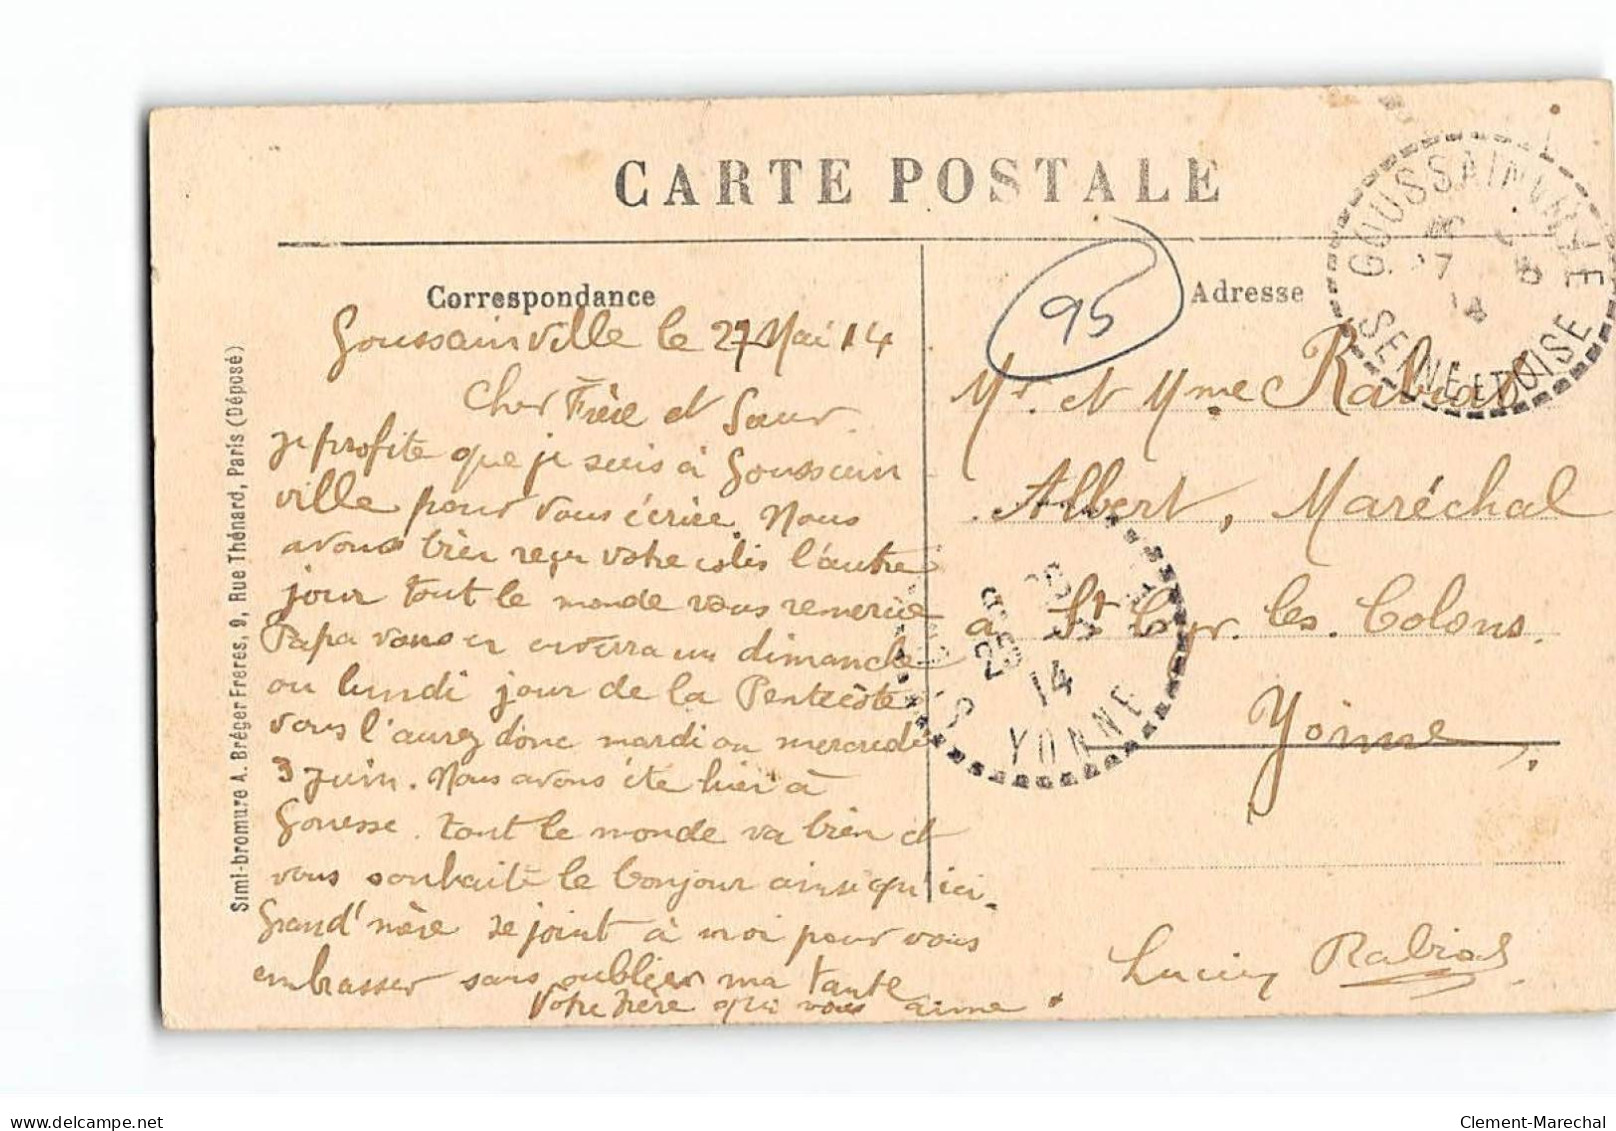 CARTE POSTALE
Correspondance
Goussainville le 27 Mai 14
Cher Frère et Sœur.
je profite que je suis à Goussain
ville pour vous écrire. Nous
avons bien reçu votre colis l'autre
jour tout le monde vous remercie
Papa vous en enverra un dimanche
ou lundi jour de la Pentecôte
vous l'aurez donc mardi ou mercredi
3 juin. Nous avons été hier à
Gonesse. tout le monde va bien et
vous souhaite le bonjour ainsi qu'ici.
Grand'mère se joint à moi pour vous
embrasser sans oublier ma tante
Votre frère qui vous aime.
Simi-bromure A. Bréger Frères, 9, Rue Thénard, Paris (Déposé)
95
Adresse
Mr. et Mme Rabiat
Albert, Maréchal
à St Cyr. les. Colons.
Yonne,
Lucien Rabiat
GOUSSAINVILLE
27 5
14
SEINE ET OISE
14
YONNE
delcampe.net
Clement-Marechal